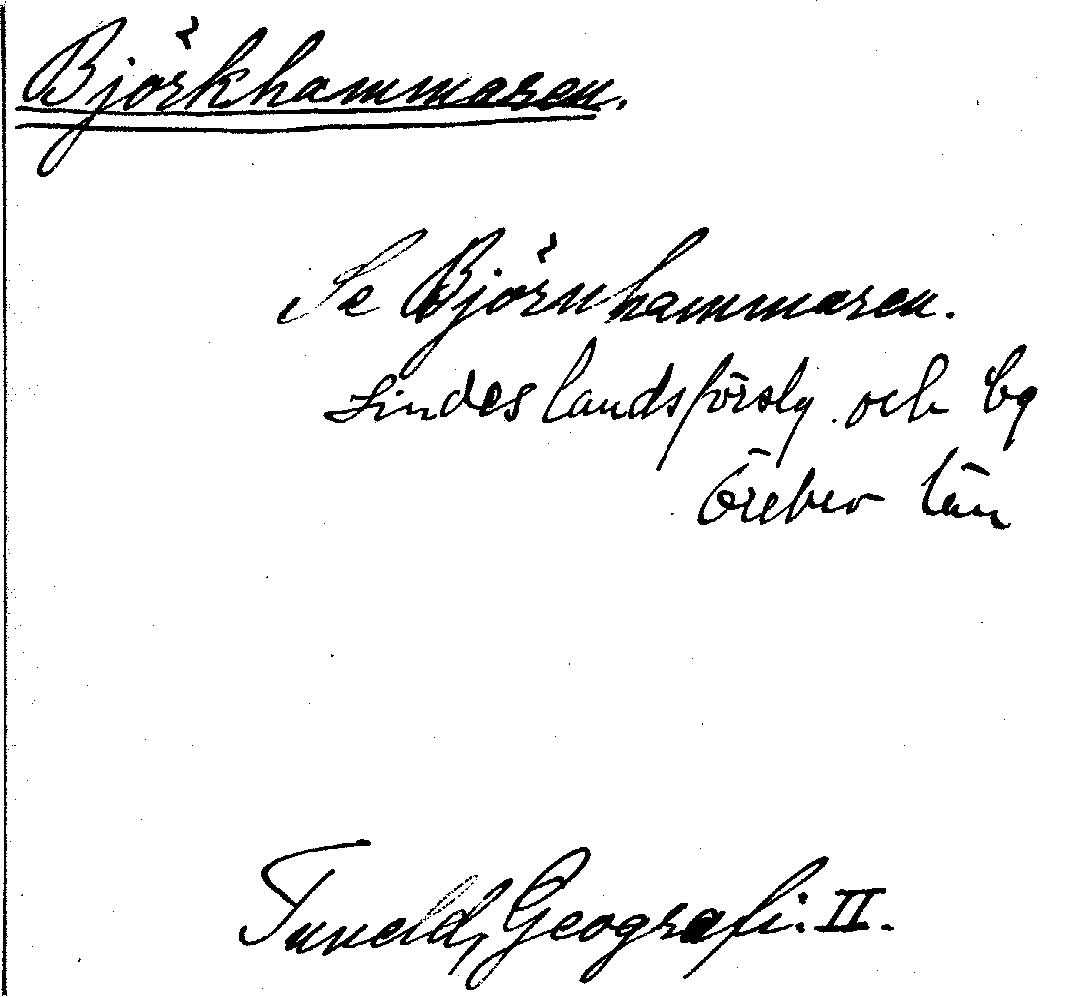 Björkhammaren.
Se Björnhammaren.
Lindes landsförslg. och bg
Örebro län
Tuneld, Geografi. II.